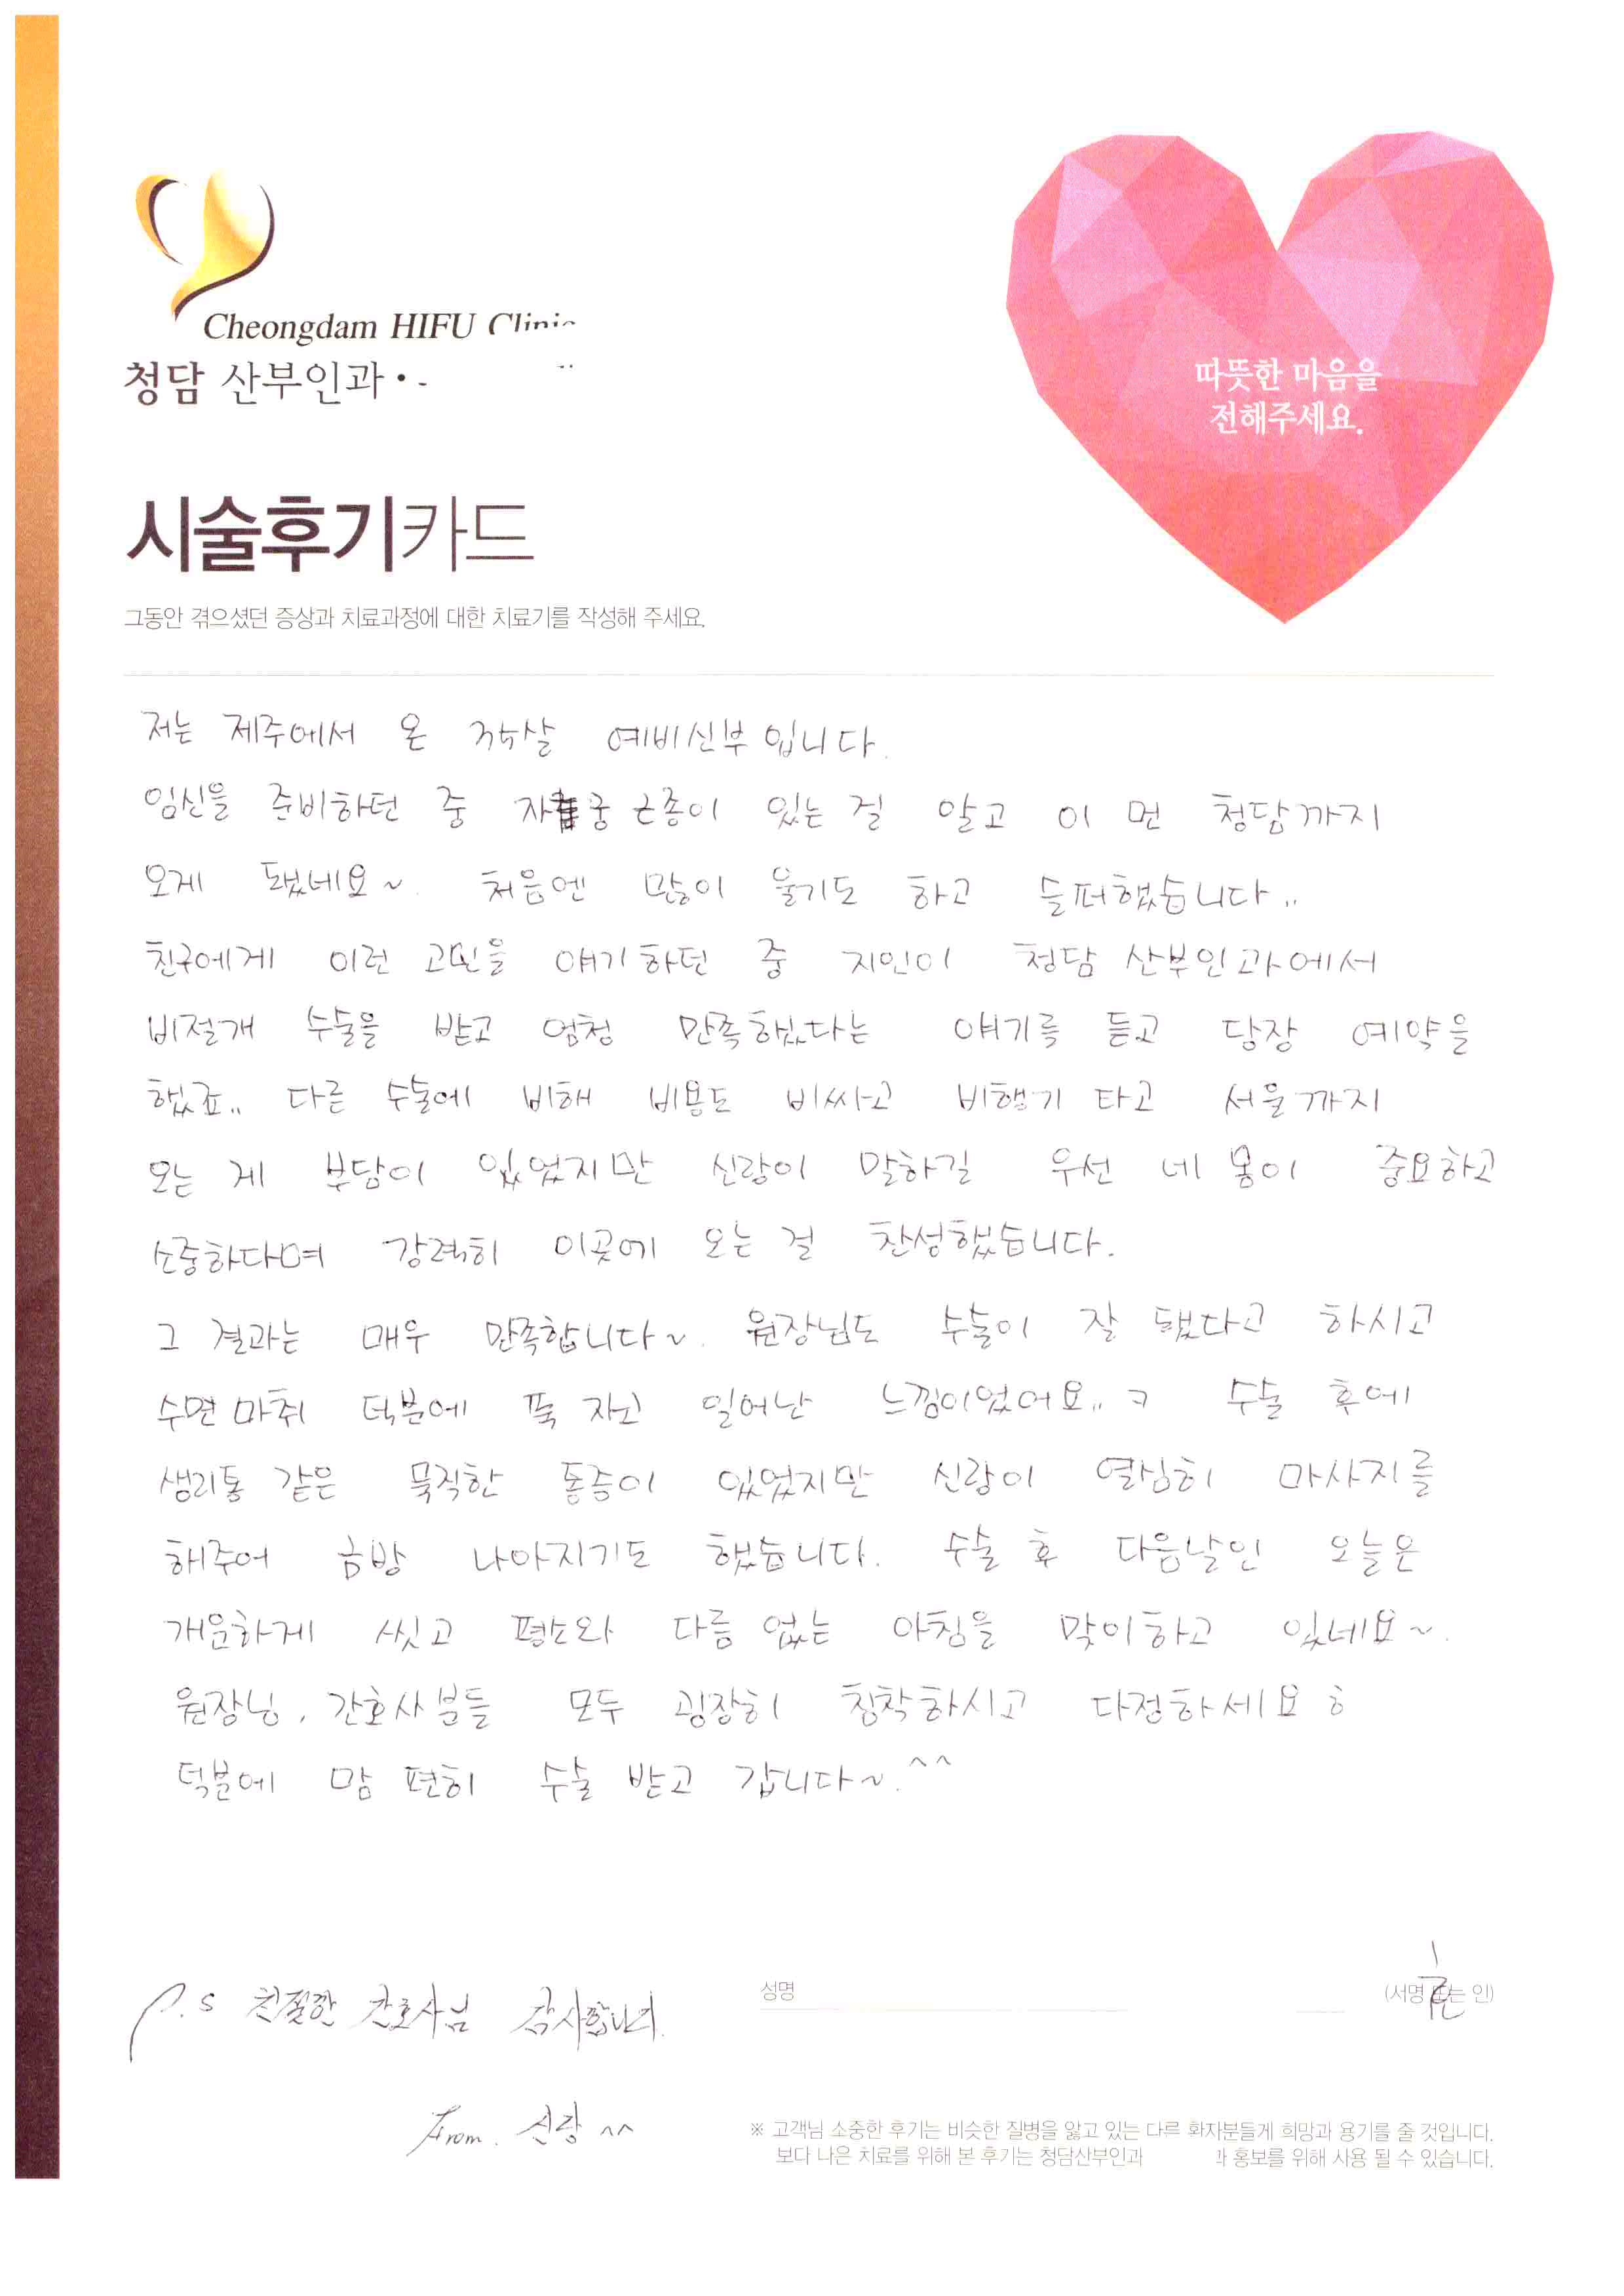 Cheongdam HIFU Clinic
청담 산부인과
따뜻한 마음을
전해주세요.
시술후기카드
그동안 겪으셨던 증상과 치료과정에 대한 치료기를 작성해 주세요.
저는 제주에서 온 35살 예비신부입니다.
임신을 준비하던 중 자궁 근종이 있는 걸 알고 이 먼 청담까지
오게 됐네요~. 처음엔 많이 울기도 하고 슬퍼했습니다..
친구에게 이런 고민을 얘기하던 중 지인이 청담 산부인과에서
비절개 수술을 받고 엄청 만족했다는 얘기를 듣고 당장 예약을
했죠.. 다른 수술에 비해 비용도 비싸고 비행기 타고 서울까지
오는 게 부담이 있었지만 신랑이 말하길 우선 네 몸이 중요하고
소중하다며 강력히 이곳에 오는 걸 찬성했습니다.
그 결과는 매우 만족합니다~. 원장님도 수술이 잘 됐다고 하시고
수면마취 덕분에 푹 자고 일어난 느낌이었어요.. ㅋ 수술 후에
생리통 같은 묵직한 통증이 있었지만 신랑이 열심히 마사지를
해주어 금방 나아지기도 했습니다. 수술 후 다음날인 오늘은
개운하게 씻고 평소와 다름 없는 아침을 맞이하고 있네요~.
원장님, 간호사분들 모두 굉장히 침착하시고 다정하세요 ㅎ
덕분에 맘 편히 수술 받고 갑니다~.^^
P.S 친절한 간호사님 감사합니다.
From. 신랑 ^^
성명
(서명 또는 인)
※ 고객님 소중한 후기는 비슷한 질병을 앓고 있는 다르 환자분들게 희망과 용기를 줄 것입니다.
보다 나은 치료를 위해 본 후기는 청담산부인과 과 홍보를 위해 사용 될 수 있습니다.